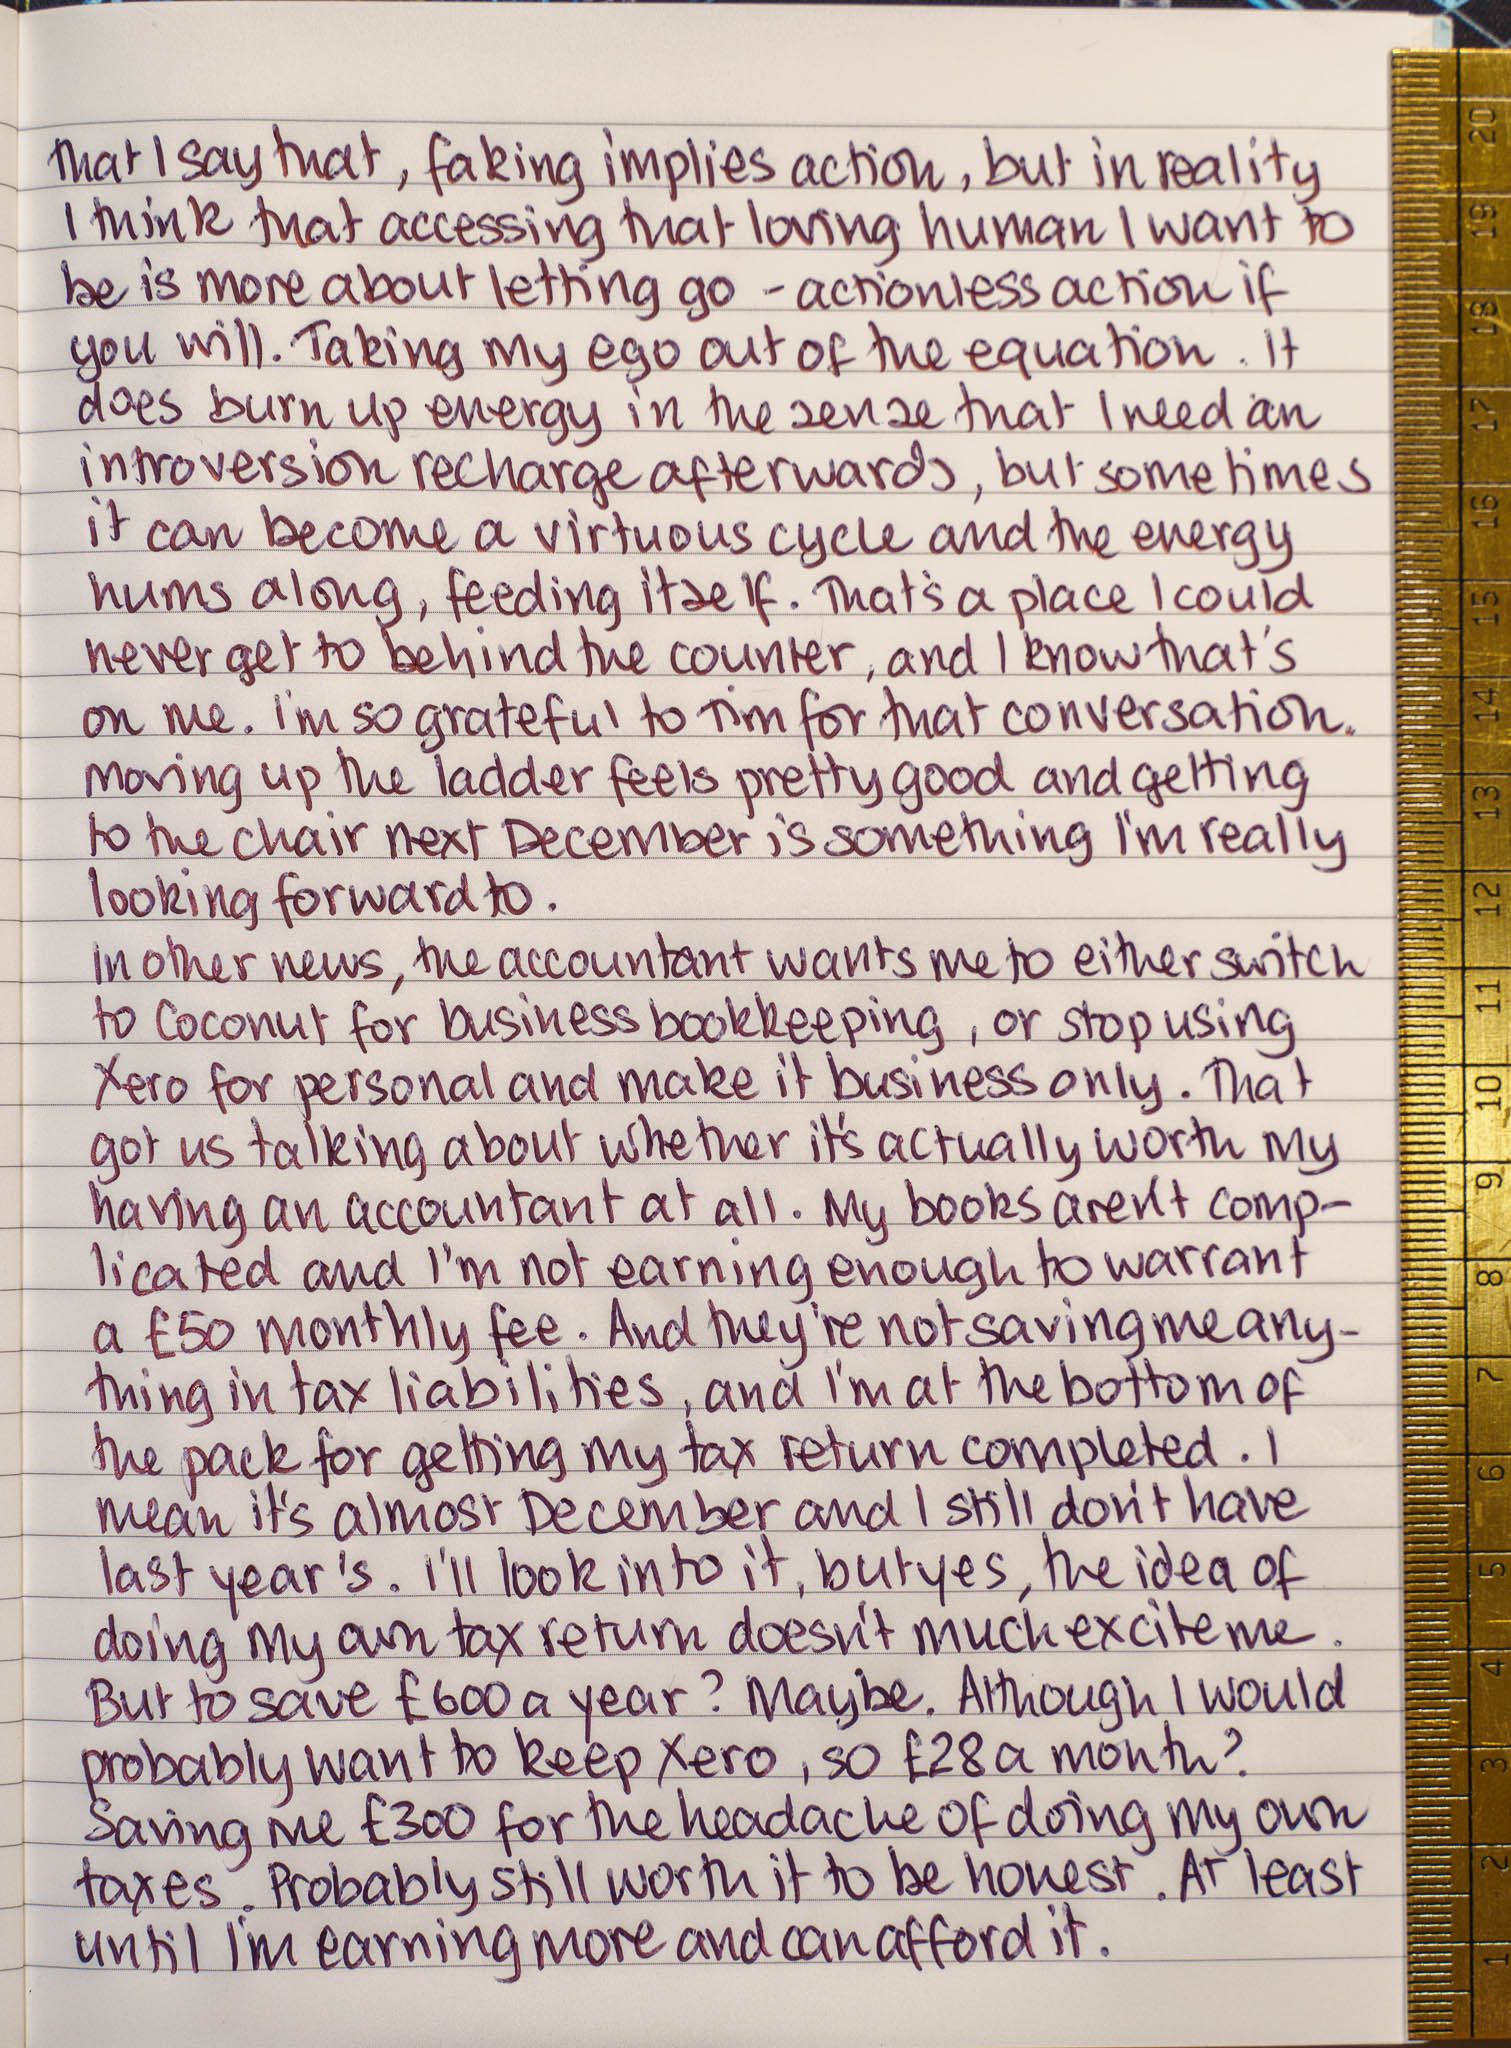 that I say that, faking implies action, but in reality
I think that accessing that loving human I want to
be is more about letting go - actionless action if
you will. Taking my ego out of the equation. It
does burn up energy in the sense that I need an
introversion recharge afterwards, but sometimes
it can become a virtuous cycle and the energy
hums along, feeding itself. That's a place I could
never get to behind the counter, and I know that's
on me. I'm so grateful to Tim for that conversation.
Moving up the ladder feels pretty good and getting
to the chair next December is something I'm really
looking forward to.
In other news, the accountant wants me to either switch
to Coconut for business bookkeeping, or stop using
Xero for personal and make it business only. That
got us talking about whether it's actually worth my
having an accountant at all. My books aren't comp-
licated and I'm not earning enough to warrant
a £50 monthly fee. And they're not saving me any-
thing in tax liabilities, and I'm at the bottom of
the pack for getting my tax return completed. I
mean it's almost December and I still don't have
last year's. I'll look into it, but yes, the idea of
doing my own tax return doesn't much excite me.
But to save £600 a year? Maybe. Although I would
probably want to keep Xero, so £28 a month?
Saving me £300 for the headache of doing my own
taxes. Probably still worth it to be honest. At least
until I'm earning more and can afford it.
20
19
18
17
16
15
14
13
12
11
10
9
8
7
6
5
4
3
2
1